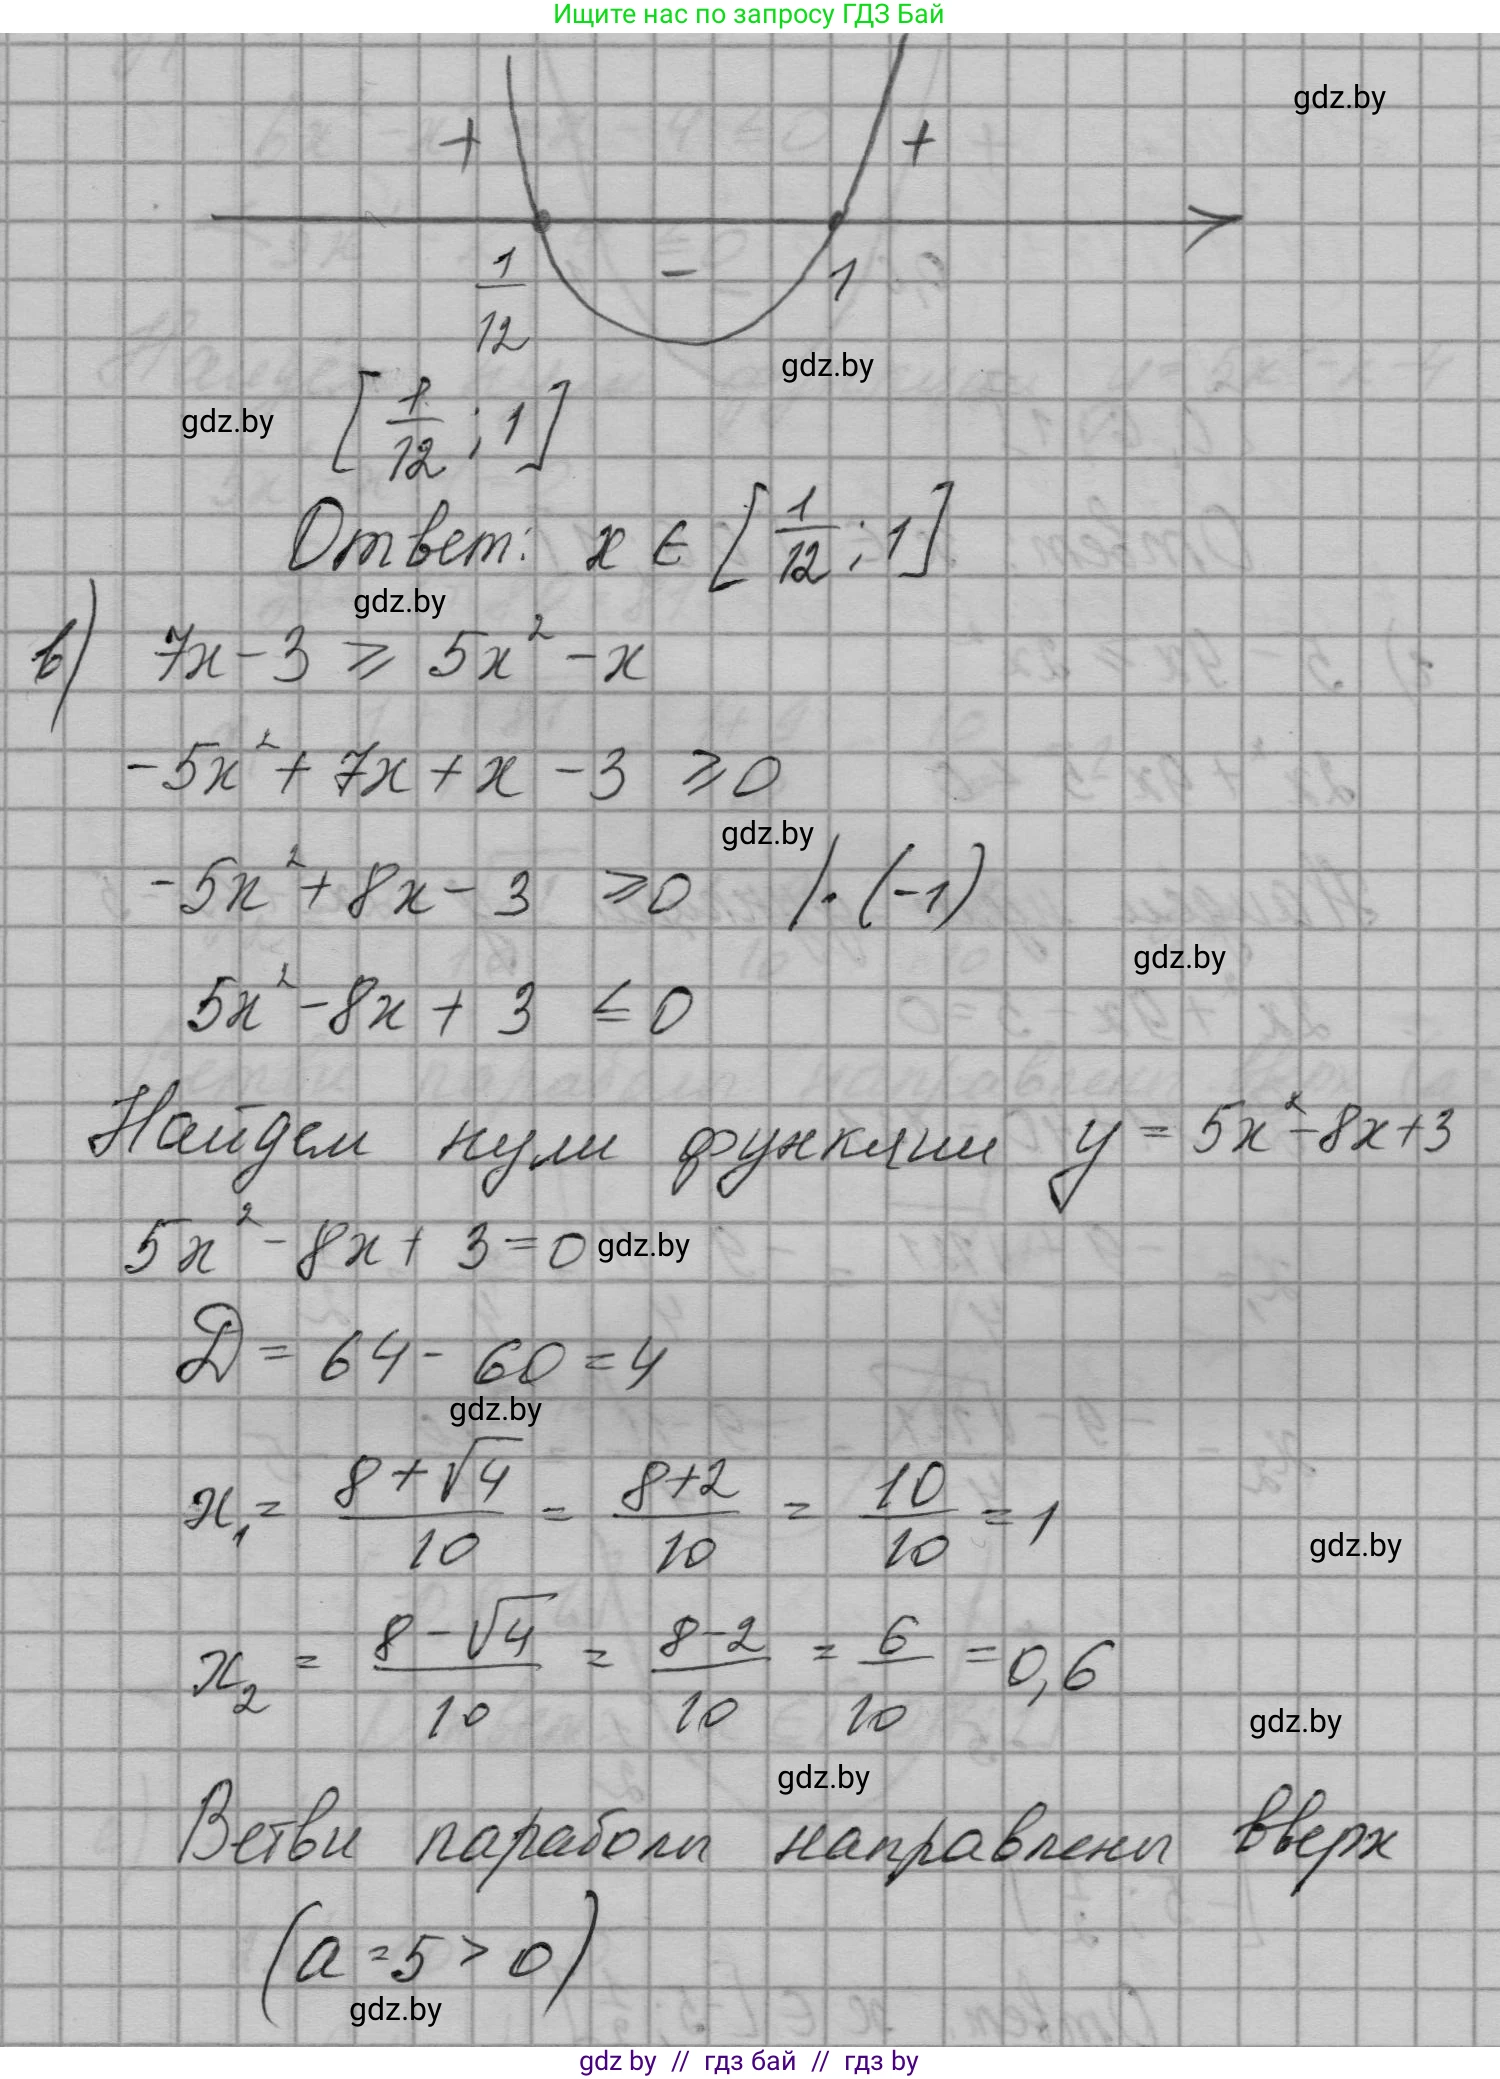 Ищите нас по запросу ГДЗ Бай
gdz.by
+ +
1/12 − 1
gdz.by
gdz.by
[1/12; 1]
Ответ: x ∈ [1/12; 1].
gdz.by
в) 7x − 3 ⩾ 5x² − x
−5x² + 7x + x − 3 ⩾ 0
gdz.by
−5x² + 8x − 3 ⩾ 0 /·(−1)
gdz.by
5x² − 8x + 3 ≤ 0
Найдем нули функции y = 5x² − 8x + 3
5x² − 8x + 3 = 0
gdz.by
D = 64 − 60 = 4
gdz.by
x₁ = (8 + √4)/10 = (8+2)/10 = 10/10 = 1
gdz.by
x₂ = (8 − √4)/10 = (8−2)/10 = 6/10 = 0,6
gdz.by
gdz.by
Ветви параболы направлены вверх
(a = 5 > 0)
gdz.by
gdz by // гдз бай // гдз by